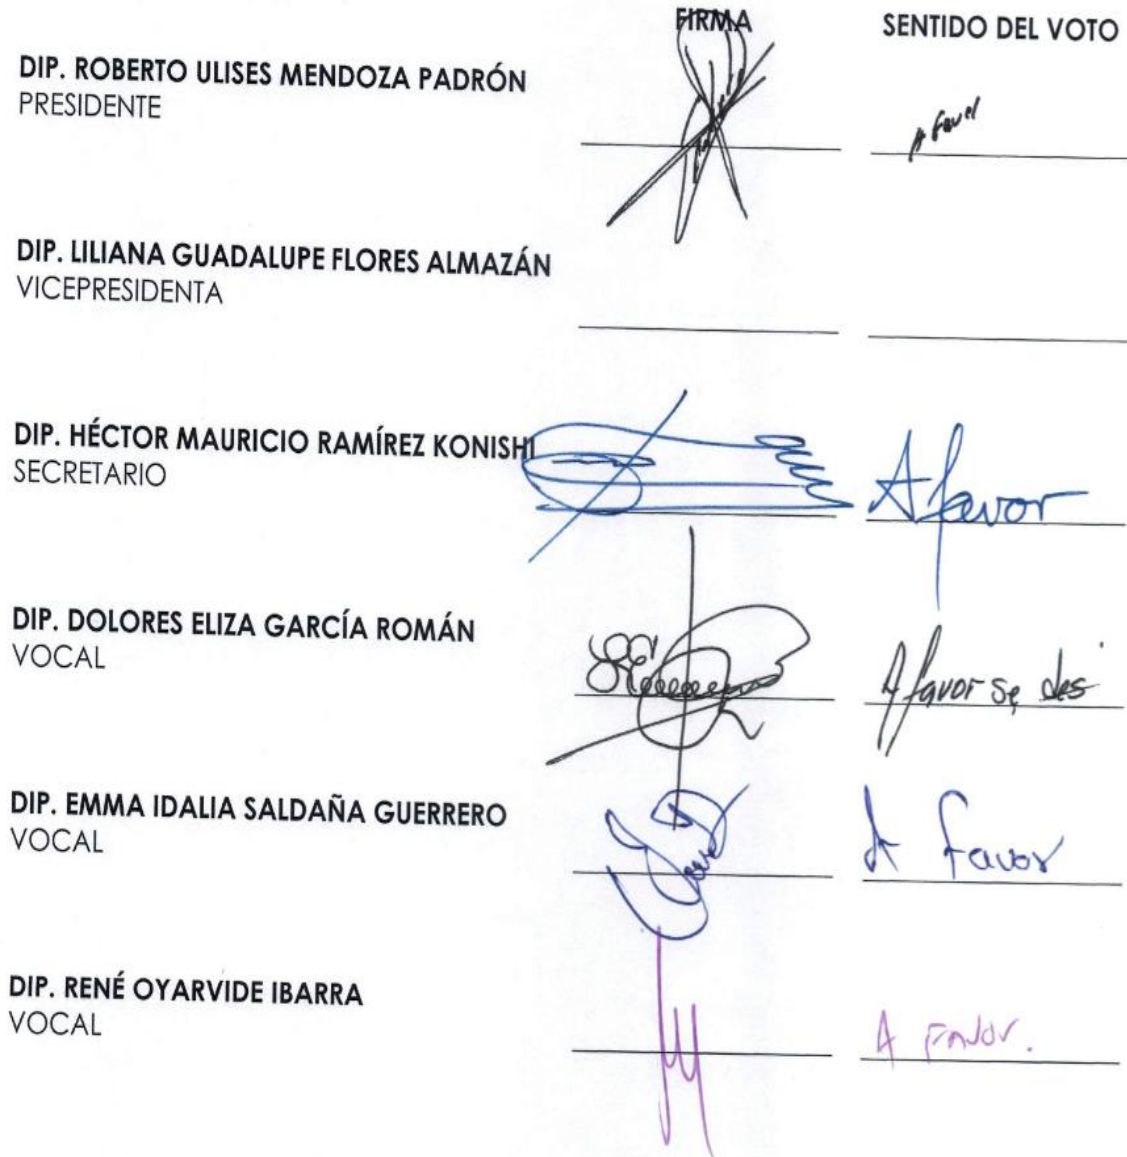 FIRMA SENTIDO DEL VOTO
DIP. ROBERTO ULISES MENDOZA PADRÓN
PRESIDENTE
A favor
DIP. LILIANA GUADALUPE FLORES ALMAZÁN
VICEPRESIDENTA
DIP. HÉCTOR MAURICIO RAMÍREZ KONISHI
SECRETARIO
A favor
DIP. DOLORES ELIZA GARCÍA ROMÁN
VOCAL
A favor se des
DIP. EMMA IDALIA SALDAÑA GUERRERO
VOCAL
A favor
DIP. RENÉ OYARVIDE IBARRA
VOCAL
A FAVOR.